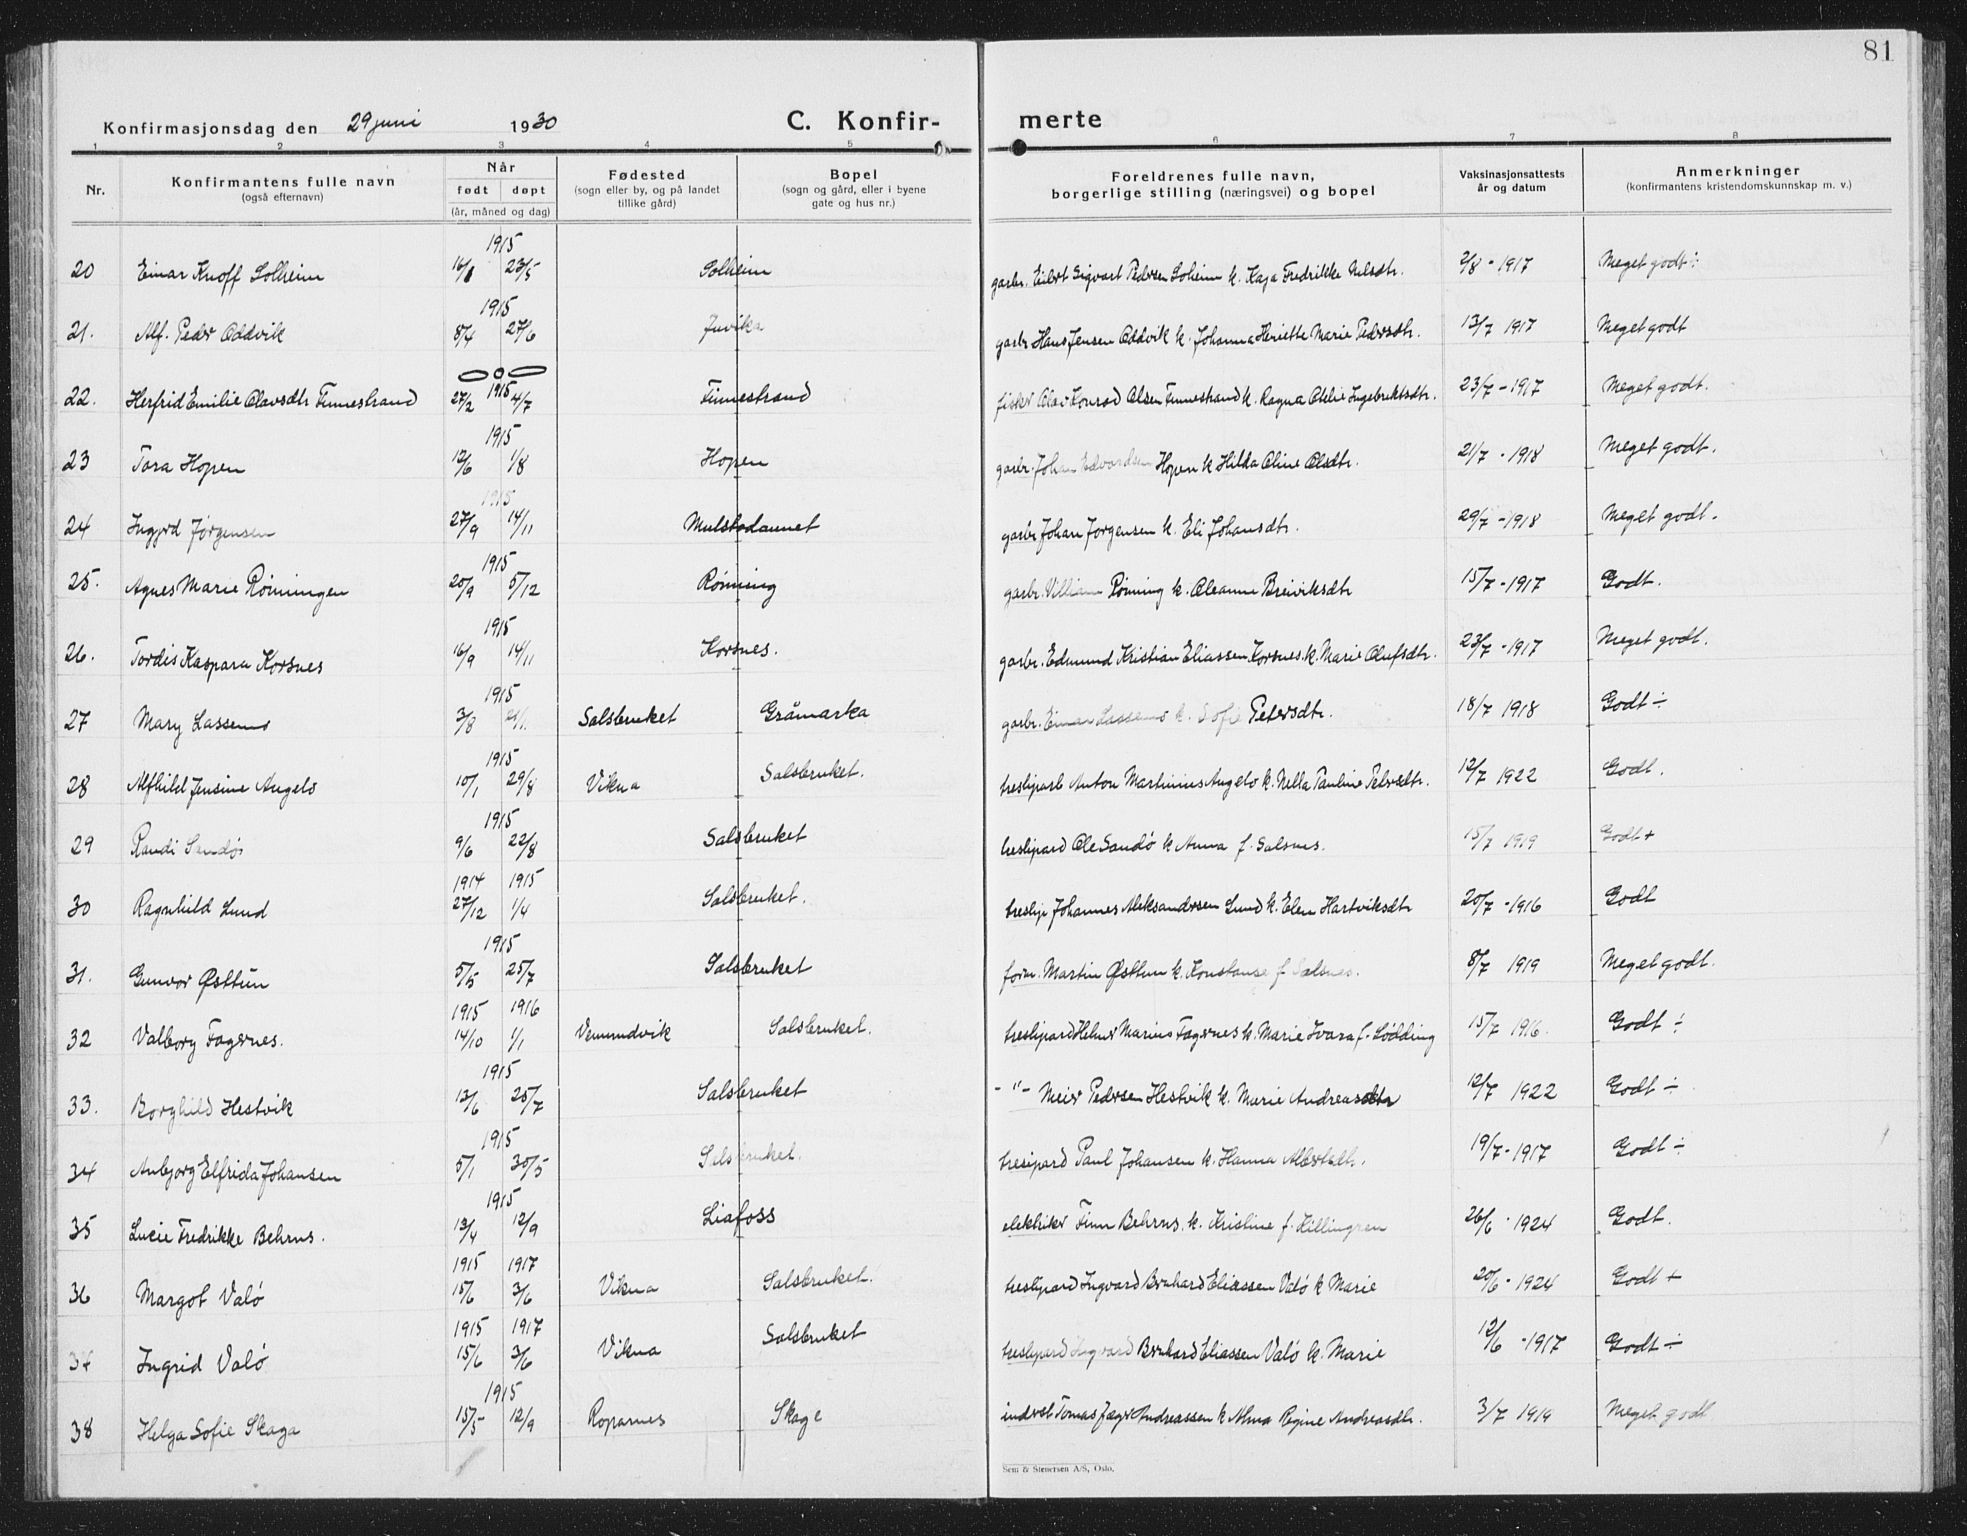 81
Konfirmasjonsdag den 29 juni 1930 C. Konfirmerte
1 2 3 4 5 6 7 8
Nr. Konfirmantens fulle navn (også efternavn) Når født døpt (år, måned og dag) Fødested (sogn eller by, og på landet tillike gård) Bopel (sogn og gård, eller i byene gate og hus nr.) Foreldrenes fulle navn, borgerlige stilling (næringsvei) og bopel Vaksinasjonsattests år og datum Anmerkninger (konfirmantens kristendomskunnskap m. v.)
1915
20 Einar Knoff Solheim 16/1 23/5 Solheim garbr. Eilert Sigvart Pedersen Solheim k. Kaja Fredrikke Nilsdtr. 2/8 - 1917 Meget godt ÷
1915
21. Alf. Peder Oddvik 8/4 27/6 Juvika garbr Hans Jensen Oddvik k. Johanna Henriette Marie Pedersdtr. 13/7 1917 Meget godt
22. Herfrid Emilie Olavsdtr Finnestrand 27/2 1915 4/7 Finnestrand fisker Olav Konrad Olsen Finnestrand k. Ragna Otelie Ingebrektsdtr. 23/7 - 1917 Meget godt.
1915
23 Tora Hopen 12/6 1/8 Hopen garbr. Johan Edvardsen Hopen k Hilda Oline Olsdtr. 21/7 - 1918 Meget godt.
1915
24 Ingjerd Jørgensen 27/9 14/11 Mulstadaunet garbr Johan Jørgensen k. Eli Johansdtr. 29/7 - 1918 Meget godt.
1915
25. Agnes Marie Rønningen 20/9 5/12 Rønning garbr. Villiam Rønning k. Oleanna Breiviksdtr 15/7 - 1917 Godt.
1915
26. Tordis Kaspara Korsnes 16/9 14/11 Korsnes. garbr. Edmund Kristian Eliassen Korsnes. k. Marie Olufsdtr. 23/7 - 1917 Meget godt.
1915
27 Mary Lassemo 3/8 Salsbruket Gråmarka garbr. Einar Lassemo k. Sofie Petersdtr. 18/7 1918 Godt ÷
1915
28 Alfhild Jensine Angelo 10/1 29/8 Vikna Salsbruket. tresliparb Anton Martinius Angelo k. Nella Pauline Pedersdtr. 12/7 1922 Godt.
1915
29 Randi Sandø 9/6 22/8 Salsbruket Ole Sandø k Anna f. Salsnes. 15/7 1919 Godt +
1914 1915
30 Ragnhild Lund 27/12 1/4 Salsbruket. Johannes Aleksandersen Lund k. Elen Hartviksdtr 20/7 - 1916 Godt
1915
31. Gunvor Østtun 5/5 25/7 Salsbruket form. Martin Østtun k. Konstanse f Salsnes. 8/7 1919 Meget godt.
1915 1916
32 Valborg Fagernes. 14/10 1/1 Vemundvik Salsbruket. Helmer Marius Fagernes k. Marie Ivara f. Lødding 15/7 1916. Godt ÷
1915
33. Borghild Hestvik 13/6 25/7 Salsbruket - " - Meier Pedersen Hestvik k. Marie Andreasdtr 12/7 1922 Godt ÷
1915
34 Anbjørg Elfrida Johansen 5/1 30/5 Salsbruket. Paul Johansen k. Hanna Albertsdtr. 19/7 - 1917 Godt ÷
1915
35 Lucie Fredrikke Behrns. 13/4 12/9 Liafoss elektriker Finn Behrns. k. Kristine f. Killingren 26/6 - 1924 Godt.
1915 1917
36 Margot Valø 15/6 3/6 Vikna Salsbruket. Ingvard Bernhard Eliassen Valø k Marie 20/6 - 1924 Godt +
1915 1917
37 Ingrid Valø 15/6 3/6 Vikna Salsbruket Ingvard Bernhard Eliassen Valø k. Marie 12/6 - 1917 Godt ÷
1915
38 Helga Sofie Skaga 15/5 12/9 Roparnes Skage Tomas Jæger Andreassen k Alma Regine Andreasdtr. 3/7 1919 Meget godt
Sem & Stenersen A/S, Oslo.